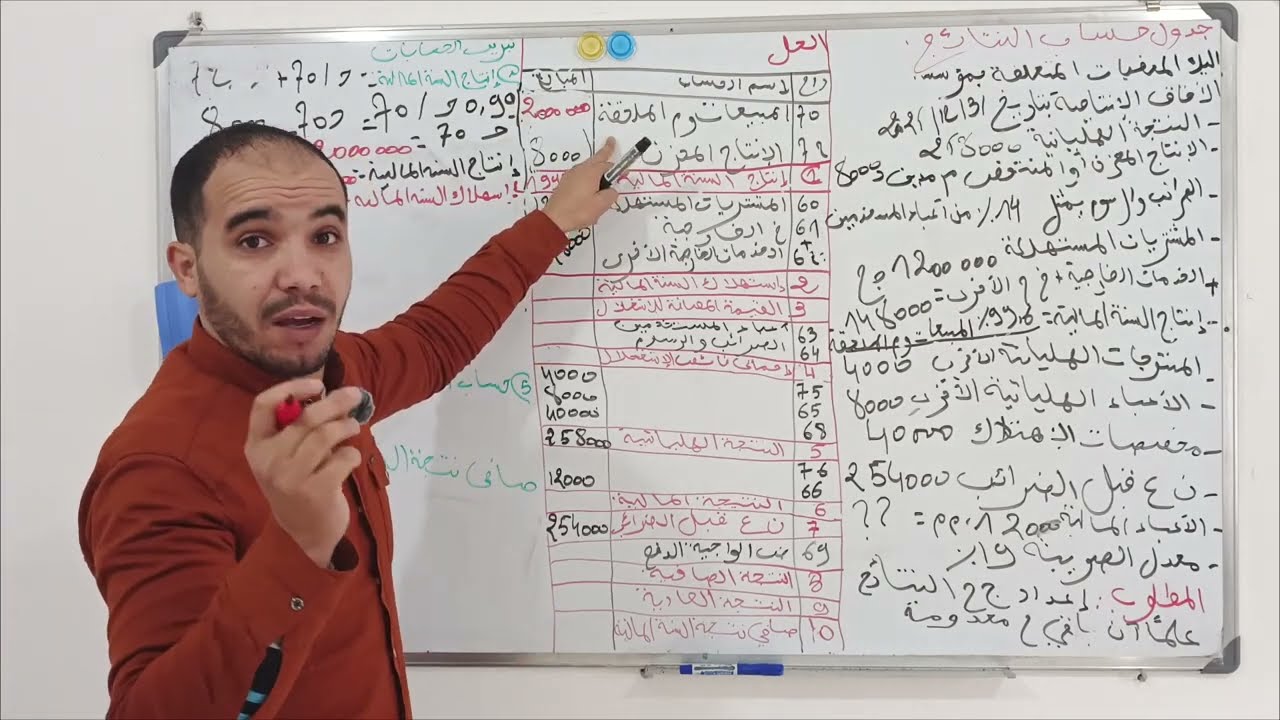 جدول حساب النتائج
إليك المعطيات المتعلقة بمؤسسة
الآفاق الإنتاجية بتاريخ 31/12/2021
- النتيجة العملياتية 258000
- الإنتاج المخزن أو المنتقص م مدين 8000
- الضرائب والرسوم يمثل 14٪ من أعباء المستخدمين
- المشتريات المستهلكة 1200000
+ الخدمات الخارجية + خ خ الأخرى = 148000
- إنتاج السنة المالية = 99,6٪ المبيعات و م الملحقة
المنتوجات العملياتية الأخرى 4000
- الأعباء العملياتية الأخرى 8000
- مخصصات الاهتلاك 40000
- ن ع قبل الضرائب 254000
- الأعباء المالية 12000 م م = ؟؟
- معدل الضريبة 19٪
المطلوب: إعداد ج ح النتائج
علما أن باقي ح معدومة
الحل
ر/ح اسم الحساب المبالغ
70 المبيعات و م الملحقة 2000000
72 الإنتاج المخزن (8000
1 إنتاج السنة المالية
60 المشتريات المستهلكة
61 خ الخارجية
62 الخدمات الخارجية الأخرى
2 استهلاك السنة المالية
3 القيمة المضافة للاستغلال
63 أعباء المستخدمين
64 الضرائب والرسوم
4 إجمالي فائض الاستغلال
75 4000
65 8000
68 40000
5 النتيجة العملياتية 258000
76
66 12000
6 النتيجة المالية
7 ن ع قبل الضرائب 254000
69 ض الواجبة الدفع
8 النتيجة الصافية
9 النتيجة العادية
10 صافي نتيجة السنة المالية
تبرير الحسابات
إنتاج السنة المالية = ح/70 + ح/72
8000 - ح70 = ح/70 0,99
ح 70 = 2000000
إنتاج السنة المالية =
استهلاك السنة المالية =
5 حساب
صافي نتيجة